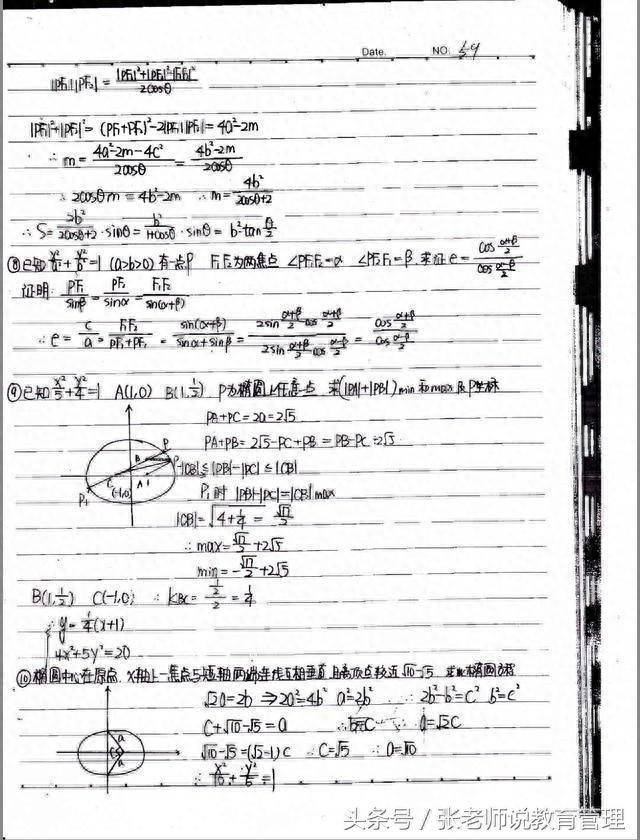 Date. NO.
|PF₁||PF₂| = (|PF₁|²+|PF₂|²-|F₁F₂|²)/2cosθ
|PF₁|²+|PF₂|² = (PF₁+PF₂)²-2|PF₁||PF₂| = 4a²-2m
∴ m = (4a²-2m-4c²)/2cosθ = (4b²-2m)/2cosθ
∴ 2cosθm = 4b²-2m ∴ m = 4b²/(2cosθ+2)
∴ S = 2b²/(2cosθ+2)·sinθ = b²/(1+cosθ)·sinθ = b²tan θ/2
⑧已知 x²/a²+y²/b²=1 (a>b>0) 有一点P F₁F₂为两焦点 ∠PF₁F₂=α ∠PF₂F₁=β. 求证 e = cos (α+β)/2 / cos (α-β)/2
证明: PF₁/sinβ = PF₂/sinα = F₁F₂/sin(α+β)
∴ e = c/a = F₁F₂/(PF₁+PF₂) = sin(α+β)/(sinα+sinβ) = (2sin (α+β)/2 cos (α+β)/2)/(2sin (α+β)/2 cos (α-β)/2) = cos (α+β)/2 / cos (α-β)/2
⑨已知 x²/5+y²/4=1 A(1,0) B(1,½) P为椭圆上任意一点 求(|PA|+|PB|)min和max及P坐标
PA+PC=2a=2√5
PA+PB=2√5-PC+PB=PB-PC+2√5
P
B
P
C
(-1,0)
A
1
P₁
-|CB|≤|PB|-|PC|≤|CB|
P₁时 |PB|-|PC|=|CB|max
|CB|=√(4+¼)=√17/2
∴max=√17/2+2√5
min=-√17/2+2√5
B(1,½) C(-1,0) ∴ kBC = ½/2 = ¼
y=¼(x+1)
4x²+5y²=20
⑩椭圆中心在原点. x轴上一焦点与短轴两端连线互相垂直 且离顶点较近√10-√5. 求此椭圆方程
√2a=2b ⇒2a²=4b² a²=2b² ∴2b²-b²=c² b²=c²
c+√10-√5=a ∴b=c ∴a=√2c
a
C
a
√10-√5=(√2-1)c ∴c=√5 ∴a=√10
∴ x²/10+y²/5=1
头条号 / 张老师说教育管理